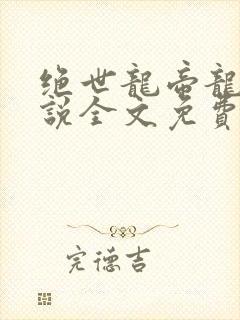 绝世龍帝龍
說全文免費
完德吉